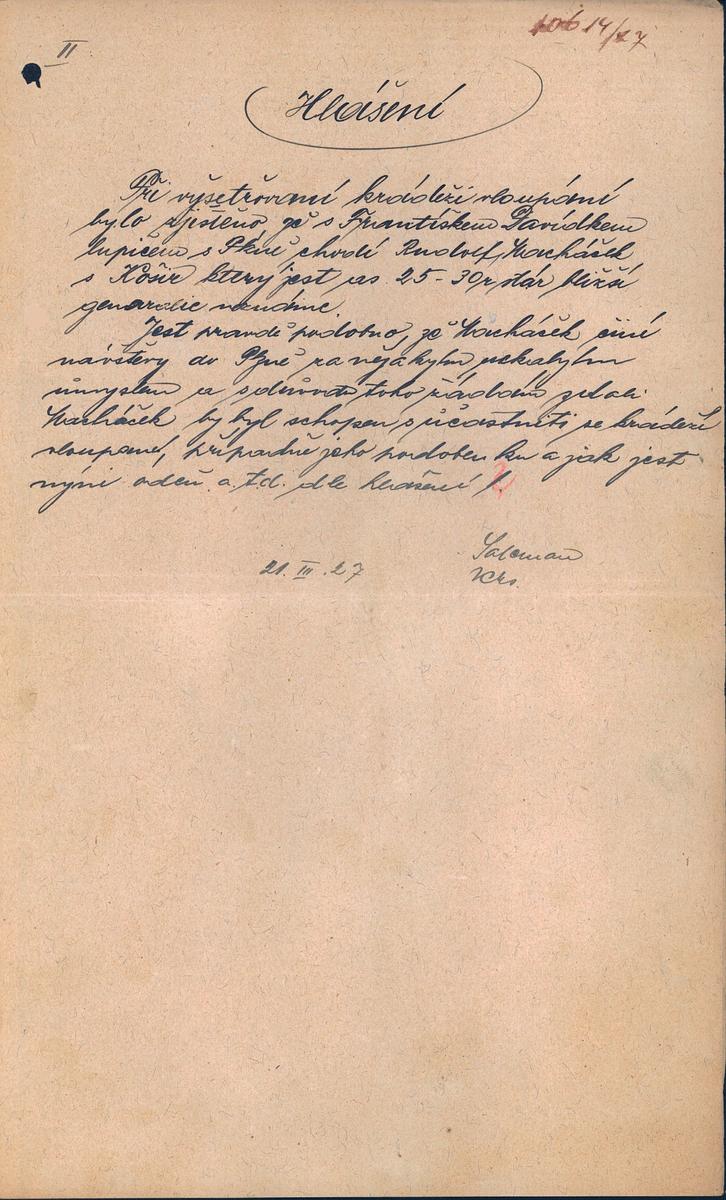 II
106 14/27
Hlášení
Při výsetřovaní krádeži vloupání
bylo zjištěno že s Františkem Davídkem
lupičem s Plzně chodí Rudolf Macháček
s Košíř který jest as 25-30 r, stár bližší
generalie neznáme.
Jest pravdě podobno, že Macháček činí
návštěvy do Plzně za nějakým nekalým
úmyslem a s důvodu toho žádám zdali
Macháček by byl schopen súčastniti se krádeží
vloupaní, případně jeho podobenku a jak jest
nyní oděn a.t.d. dle hlašení /.
21. III. 27
Salcman